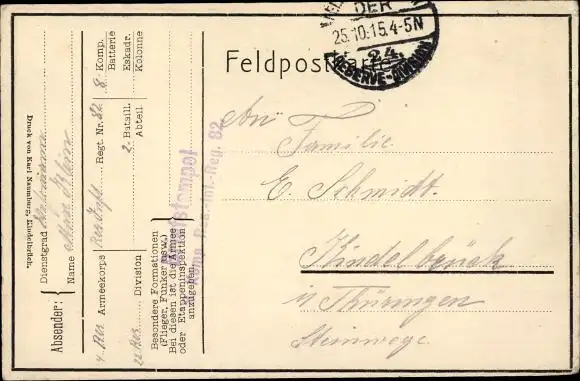 DER
25.10.15.4-5N
24.
RESERVE-DIVISION
Feldpostkarte
An
Familie
E. Schmidt.
Kindelbrück
in Thüringen
Steinwege
Druck von Karl Naumburg, Kindelbrück.
Absender:
Dienstgrad
Name
4. Res Armeekorps
22 Res. Division
Res Inft. Regt. Nr. 82
2. Bataill.
Abteil.
8. Komp.
Batterie
Eskadr.
Kolonne
Besondere Formationen
(Flieger, Funker usw.)
Bei diesen ist die Armee
oder Etappeninspektion
anzugeben.
Res.-Inf.-Reg. 82